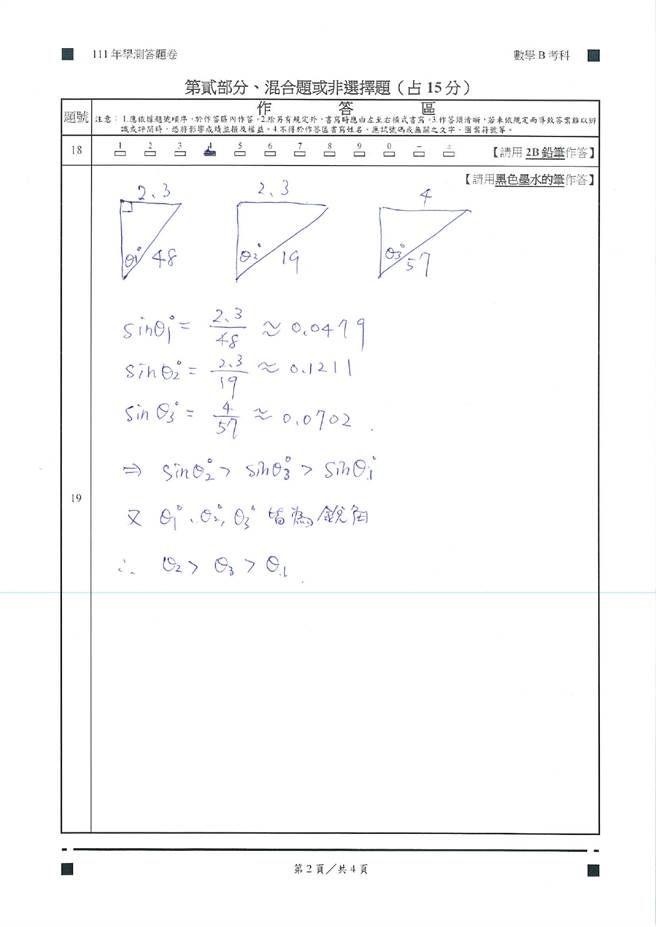 111 年學測答題卷 數學 B 考科
第貳部分、混合題或非選擇題（占 15 分）
題號
作 答 區
注意：1.應依據題號順序，於作答區內作答。2.除另有規定外，書寫時應由左至右橫式書寫。3.作答須清晰，若未依規定而導致答案難以辨
識或評閱時，恐將影響成績並損及權益。4.不得於作答區書寫姓名、應試號碼或無關之文字、圖案符號等。
18 1 2 3 4 5 6 7 8 9 0 - ± 【請用 2B 鉛筆作答】
【請用黑色墨水的筆作答】
2.3 2.3 4
θ1° 48 θ2° 19 θ3° 57
sinθ1° = 2.3/48 ≈ 0.0479
sinθ2° = 2.3/19 ≈ 0.1211
sinθ3° = 4/57 ≈ 0.0702.
⇒ sinθ2° > sinθ3° > sinθ1°
19
又 θ1°、θ2°, θ3° 皆為銳角
∴ θ2 > θ3 > θ1
第 2 頁／共 4 頁